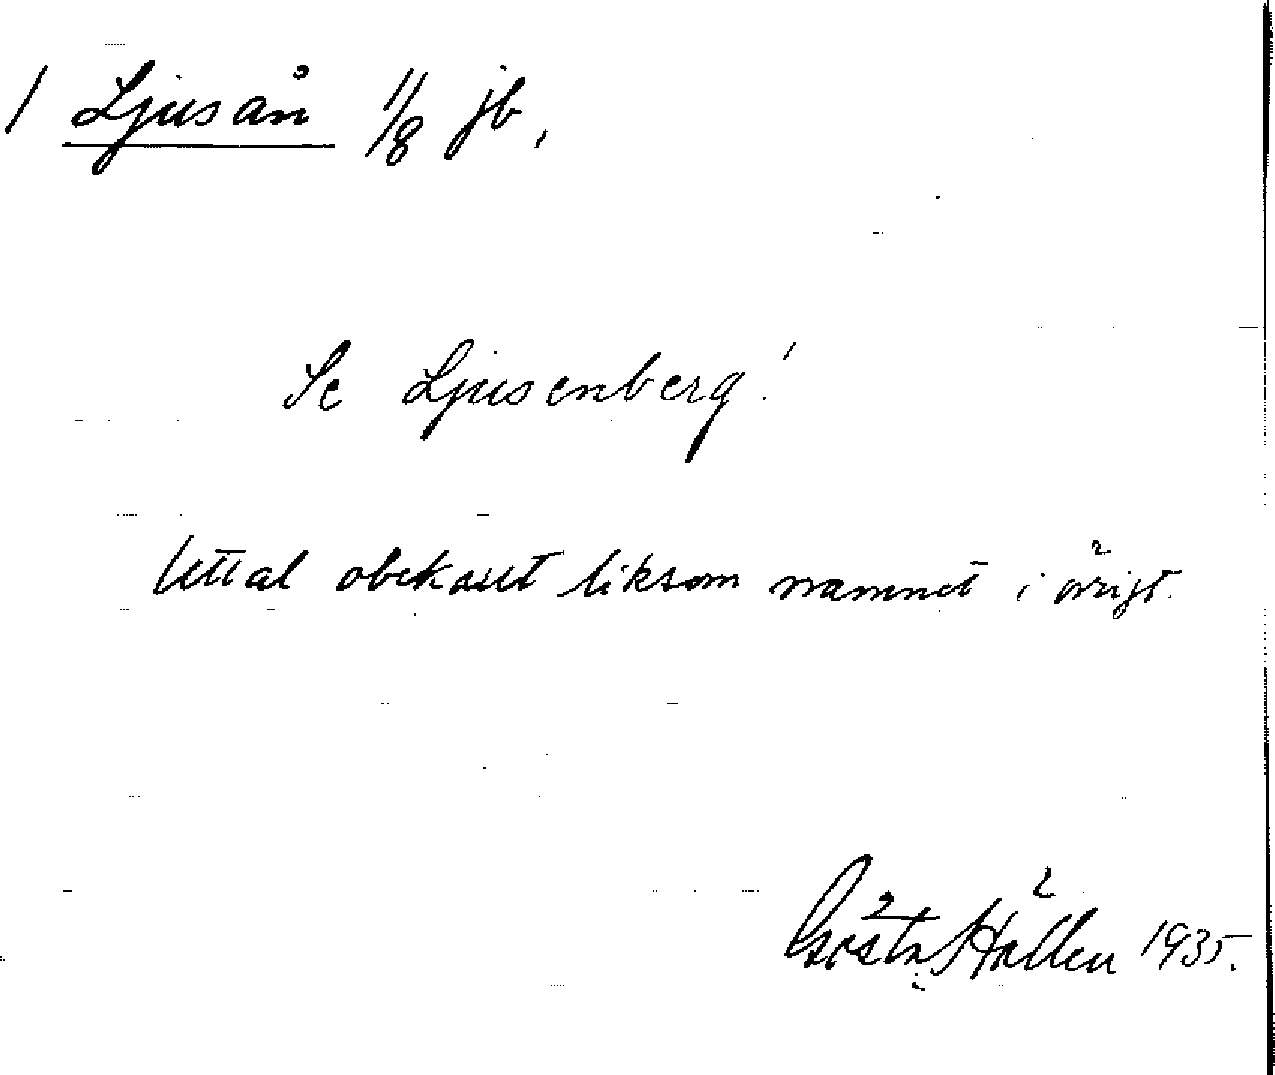 / Ljusån 1/8 jb,
Se Ljusenberg!
Uttal obekant liksom namnet i övrigt.
Gösta Hällen 1935.